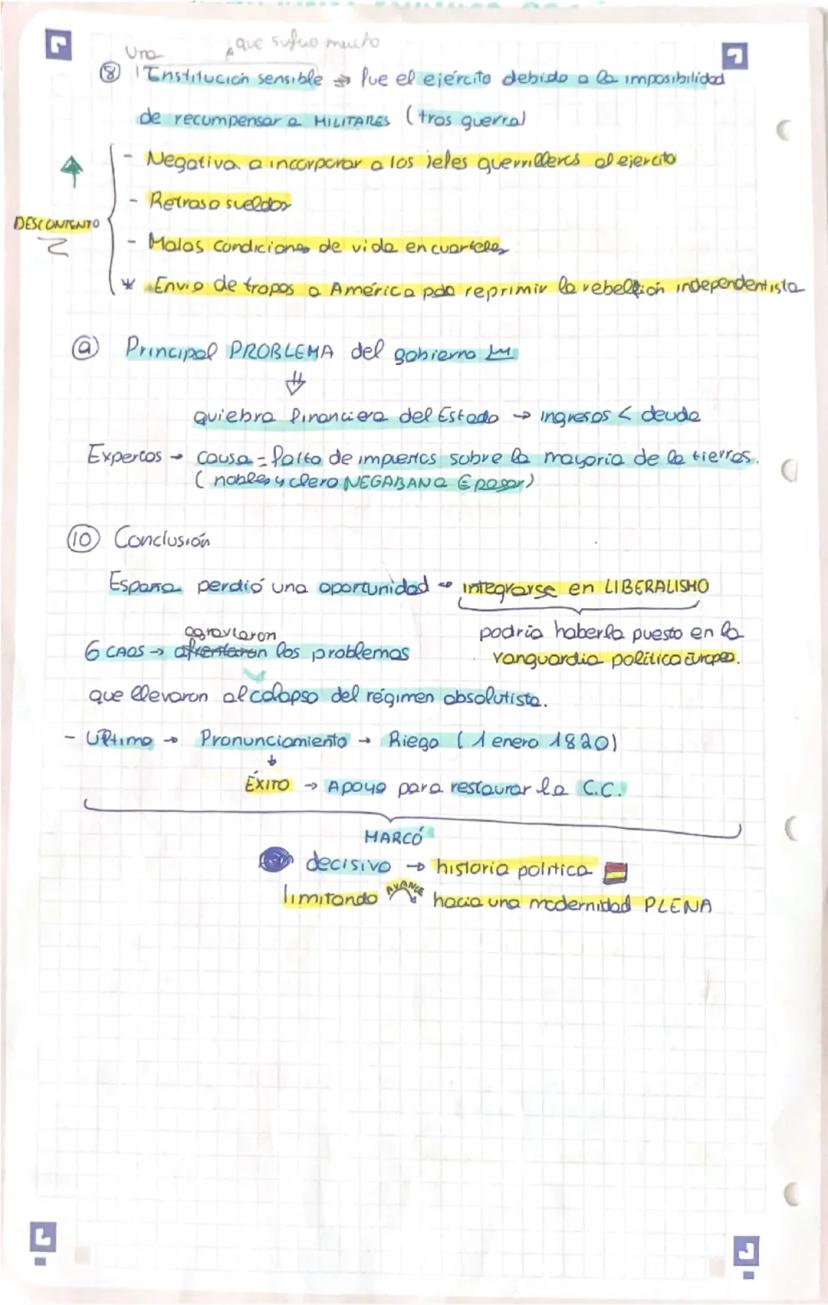 Una que sufrió mucho
⑧ Institución sensible ⇒ fue el ejército debido a la imposibilidad
de recompensar a MILITARES (tras guerra)
- Negativa a incorporar a los jefes guerrilleros al ejercito
- Retraso sueldos
DESCONTENTO
- Malas condiciones de vida en cuarteles
* Envio de tropas a América para reprimir la rebelión independentista
⑨ Principal PROBLEMA del gobierno
⇓
quiebra financiera del Estado → ingresos < deuda
Expertos → causa = falta de impuestos sobre la mayoria de la tierras.
(nobles y clero NEGABAN a pagar)
⑩ Conclusión
España perdió una oportunidad → integrarse en LIBERALISMO
podría haberla puesto en la
vanguardia politica Europea.
agravaron
6 CAOS → los problemas
que llevaron al colapso del régimen absolutista.
- Último → Pronunciamiento → Riego (1 enero 1820)
↓
ÉXITO → Apoyo para restaurar la C.C.
MARCÓ
decisivo → historia politica
limitando AVANCE hacia una modernidad PLENA